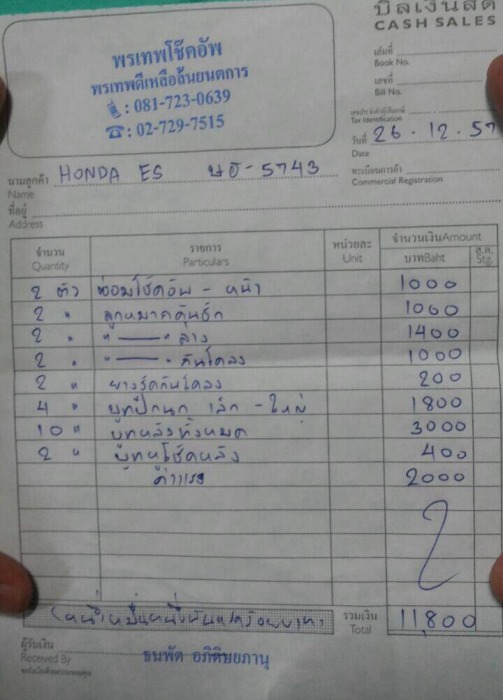 บิลเงินสด
CASH SALES
พรเทพโช๊คอัพ
พรเทพดีเหลือล้นยนตการ
: 081-723-0639
: 02-729-7515
เล่มที่
Book No.
เลขที่
Bill No.
เลขประจำตัวผู้เสียภาษี
Tax Identification
วันที่ 26.12.57
Date
ทะเบียนการค้า
Commercial Registration
นามลูกค้า HONDA ES -5743
Name
ที่อยู่
Address
จำนวน รายการ หน่วยละ จำนวนเงินAmount
Quantity Particulars Unit บาทBaht ส.ต. Stg.
2 ตัว ซ่อมโช๊คอัพ - หน้า 1000
2 " ลูกหมากคันชัก 1000
2 " " — " ล่าง 1400
2 " " — " กันโคลง 1000
2 " ยางรัดกันโคลง 200
4 " บู๊ทปีกนก เล็ก - ใหญ่ 1800
10 " บู๊ทหลังทั้งหมด 3000
2 " บู๊ทหูโช๊คหลัง 400
ค่าแรง 2000
(หนึ่งหมื่นหนึ่งพันแปดร้อยบาท) รวมเงิน 11,800
Total
ผู้รับเงิน
Received By